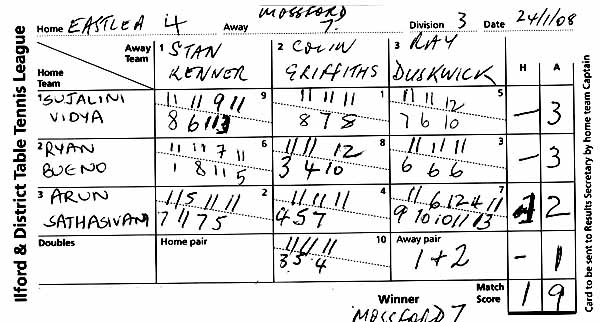 Ilford & District Table Tennis League
Home EASTLEA 4 Away MOSSFORD 7. Division 3 Date 24/1/08
Away Team
Home Team
1 STAN KENNER
2 COLIN GRIFFITHS
3 RAY DUSKWICK
H A
1 SUJALINI VIDYA
9 11 11 9 11
8 6 11 13
1 11 11 11
8 7 8
5 11 11 12
7 6 10
— 3
2 RYAN BUENO
6 11 11 7 11
1 8 11 5
8 11 11 12
3 4 10
3 11 11 11
6 6 6
— 3
3 ARUN SATHASIVAM
2 11 5 11 11
7 11 7 5
4 11 11 11
4 5 7
7 11 6 12 4 11
9 10 10 11 13
1 2
Doubles
Home pair
10 11 11 11
8 5 4
Away pair
1 + 2
- 1
Winner
MOSSFORD 7
Match Score
1 9
Card to be sent to Results Secretary by home team Captain